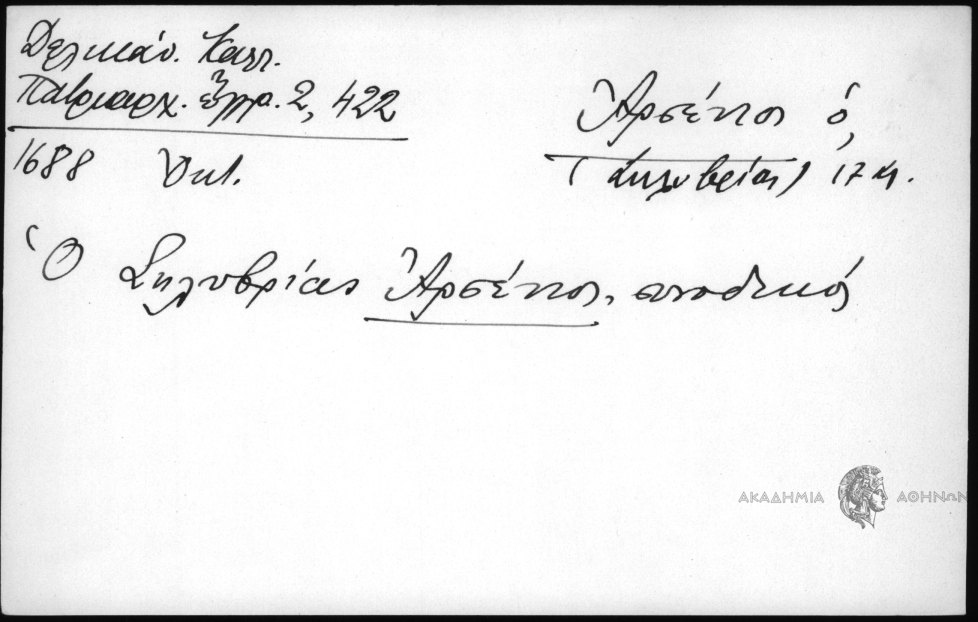 Δελικάν. Καλλ.
Πατριαρχ. ἔγγρ. 2, 422
1688 Ὀκτ.
Ἀρσένιος ὁ,
(Σηλυβρίας) 17 αἰ.
Ὁ Σηλυβρίας Ἀρσένιος, συνοδικός
ΑΚΑΔΗΜΙΑ ΑΘΗΝΩΝ